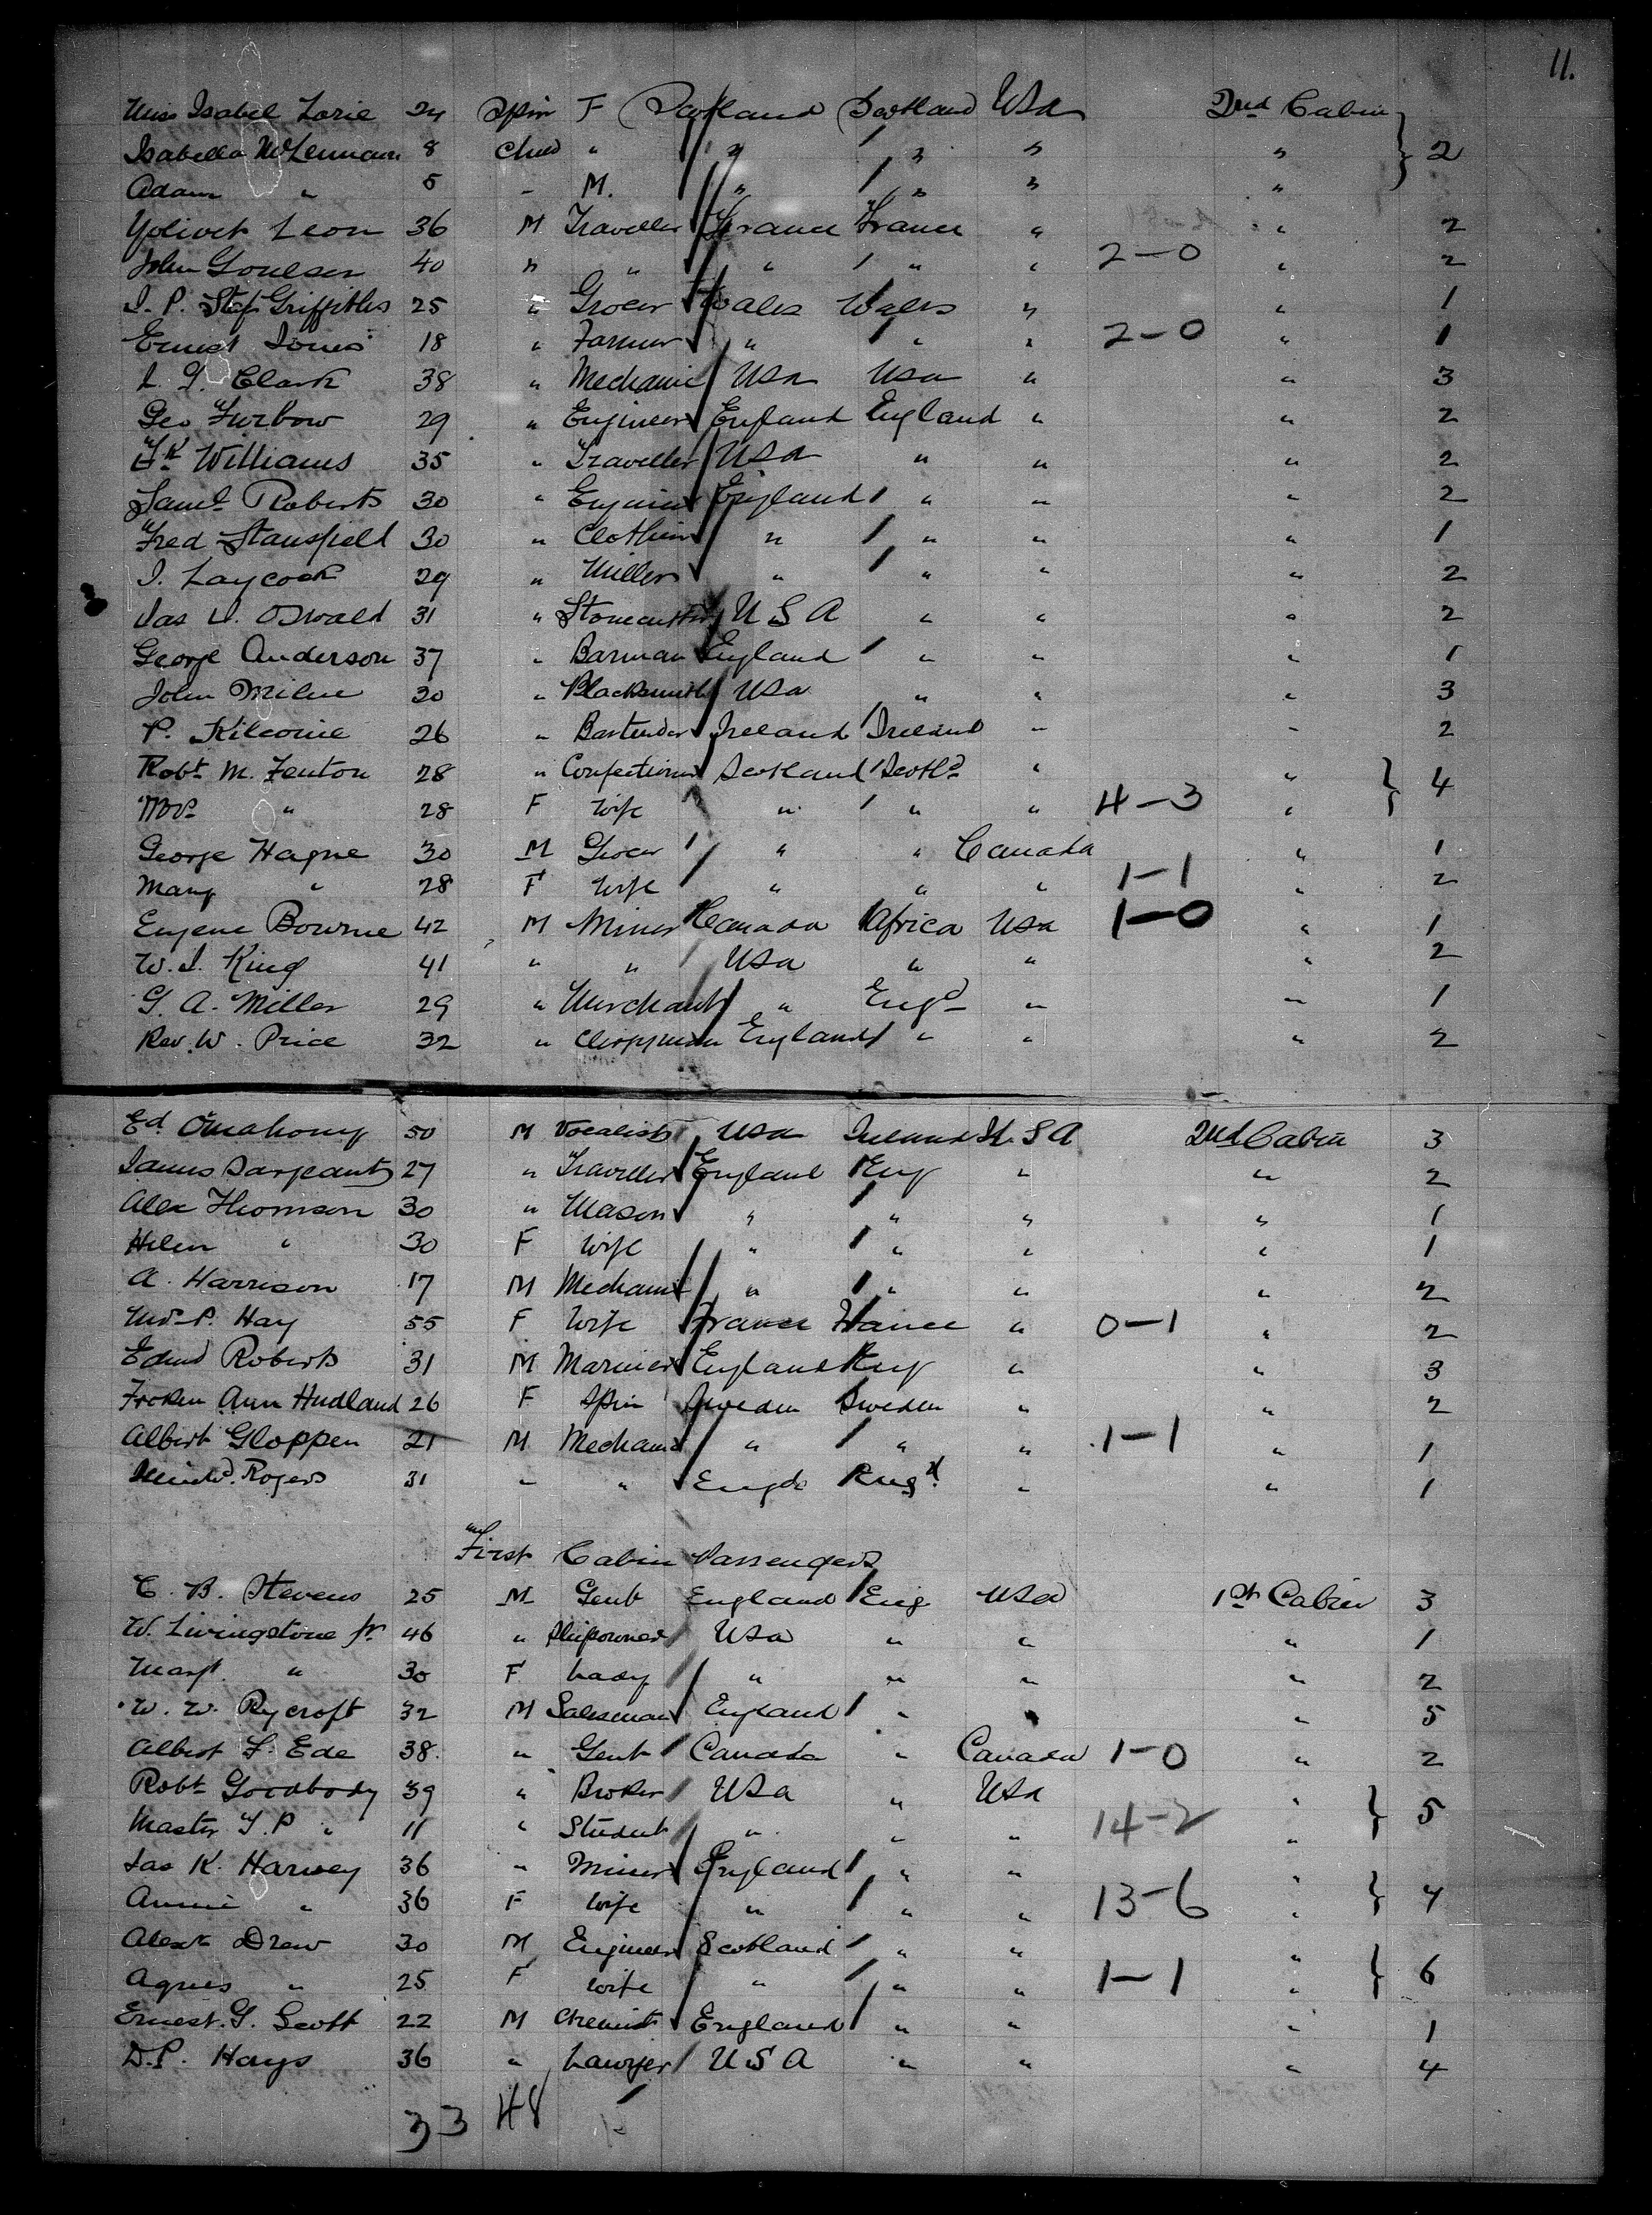 11.
Miss Isabel Lorie 24 Spin F Scotland Scotland USa 2nd Cabin
Isabella McLennan 8 Child " " " " " } 2
Adam " 5 - M. " " " "
Yolivet Leon 36 M Traveller France France " " 2
John Goulsen 40 " " " " " 2-0 " 2
I. P. Stef Griffiths 25 " Grocer Wales Wales " " 1
Ernest Jones 18 " Farmer " " " 2-0 " 1
L. G. Clark 38 " Mechanic USa USa " " 3
Geo Furbow 29 " Engineer England England " " 2
Fk Williams 35 " Traveller USA " " " 2
Saml Roberts 30 " Engineer England " " " 2
Fred Stansfield 30 " Clothier " " " " 1
I. Laycock 29 " Miller " " " " 2
Jas W. Oswald 31 " Stonecutter U S A " " " 2
George Anderson 37 " Barman England " " " 1
John Milne 30 " Blacksmith USa " " " 3
P. Kilcoine 26 " Bartender Ireland Ireland " " 2
Robt M. Fenton 28 " Confectioner Scotland Scotld " " } 4
Mrs " 28 F Wife " " " 4-3 "
George Hagne 30 M Grocer " " Canada " 1
Mary " 28 F Wife " " " 1-1 " 2
Eugene Bowrne 42 M Miner Canada Africa USa 1-0 " 1
W. I. King 41 " " USa " " " 2
G. A. Miller 29 " Merchant " Engd " " 1
Rev. W. Price 32 " Clergyman England " " " 2
Ed. Omahony 50 M Vocalist USa Ireland U. S A 2nd Cabin 3
James Sargeant 27 " Traveller England Eng " " 2
Alex Thomson 30 " Mason " " " " 1
Helen " 30 F Wife " " " " 1
A. Harrison 17 M Mechanic " " " " 2
Mrs P. Hay 55 F Wife France France " 0-1 " 2
Edmd Roberts 31 M Mariner England Eng " " 3
Froken Ann Hudland 26 F Spin Sweden Sweden " " 2
Albert Gloppen 21 M Mechanic " " " 1-1 " 1
Rogers 31 " " Engd Engd " " 1
First Cabin Passengers
C. B. Stevens 25 M Gent England Eng. USA 1st Cabin 3
W. Livingstone jr. 46 " Shipowner USa " " " 1
Margt. " 30 F Lady " " " " 2
W. W. Rycroft 32 M Salesman England " " " 5
Albert F. Ede 38. " Gent Canada " Canada 1-0 " 2
Robt Goodbody 39 " Broker USa " USa " } 5
Master T. P " 11 " Student " " " 14-2 "
Jas K. Harvey 36 " Miner England " " " } 4
Annie " 36 F Wife " " " 13-6 "
Alexr Drew 30 M Engineer Scotland " " " } 6
Agnes " 25 F Wife " " " 1-1 "
Ernest. G. Scott 22 M Chemist England " " " 1
D. P. Hays 36 " Lawyer U S A " " " 4
33 48